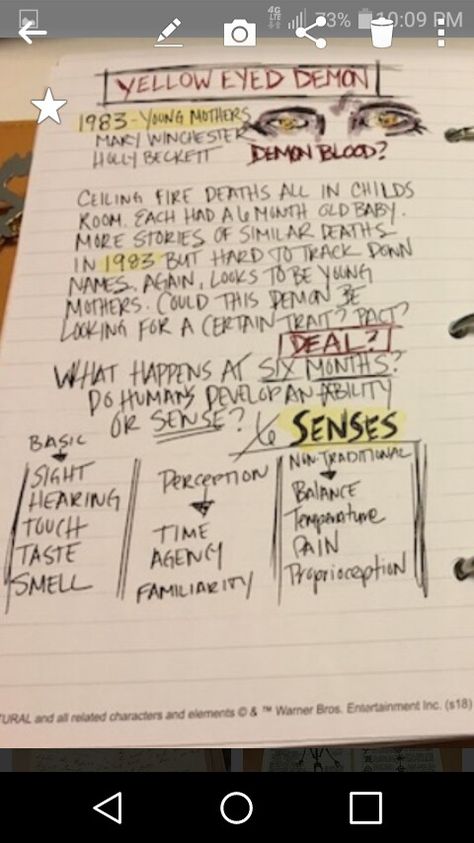 4G LTE 73% 10:09 PM
YELLOW EYED DEMON
1983 - YOUNG MOTHERS
MARY WINCHESTER
HOLLY BECKETT
DEMON BLOOD?
CEILING FIRE DEATHS ALL IN CHILDS
ROOM. EACH HAD A 6 MONTH OLD BABY.
MORE STORIES OF SIMILAR DEATHS
IN 1983 BUT HARD TO TRACK DOWN
NAMES. AGAIN, LOOKS TO BE YOUNG
MOTHERS. COULD THIS DEMON BE
LOOKING FOR A CERTAIN TRAIT? PACT?
DEAL?
WHAT HAPPENS AT SIX MONTHS?
DO HUMANS DEVELOP AN ABILITY
OR SENSE?
6 SENSES
BASIC
SIGHT
HEARING
TOUCH
TASTE
SMELL
PERCEPTION
TIME
AGENCY
FAMILIARITY
NON-TRADITIONAL
BALANCE
Temperature
PAIN
Proprioception
TURAL and all related characters and elements © & ™ Warner Bros. Entertainment Inc. (s18)